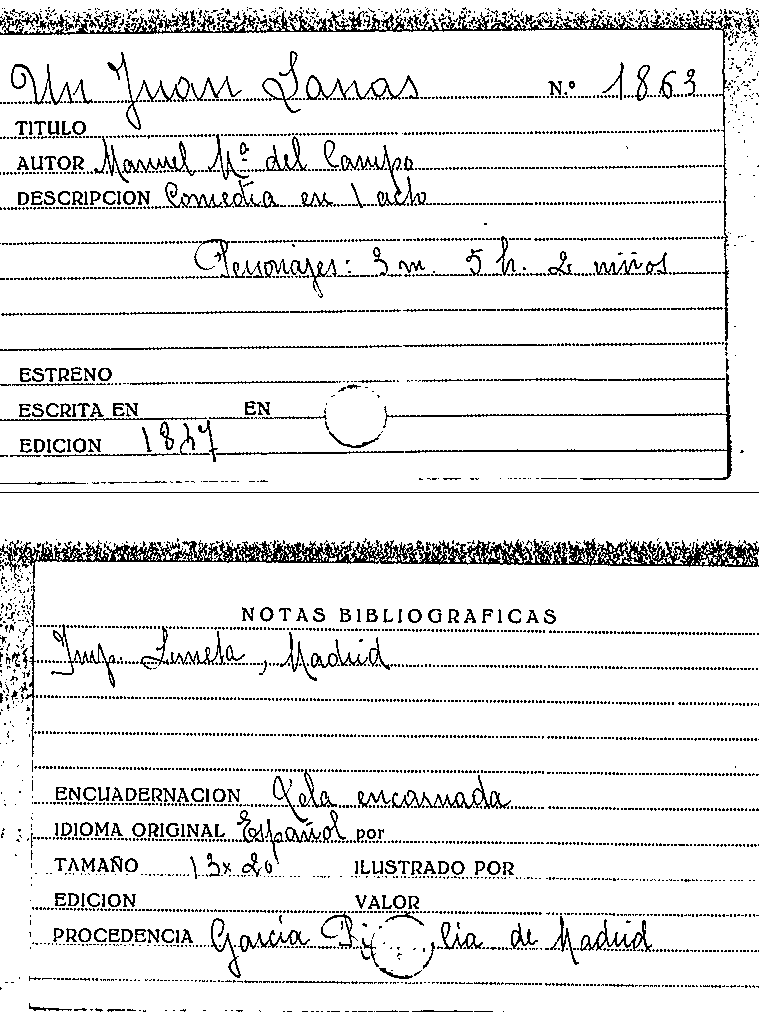 Un Juan Lanas N.º 1863
TITULO
AUTOR Manuel Mª del Campo
DESCRIPCION Comedia en 1 acto
Personajes: 3 m. 5 h. 2 niños
ESTRENO
ESCRITA EN EN
EDICION
NOTAS BIBLIOGRAFICAS
Imp. , Madrid
ENCUADERNACION Tela encarnada
IDIOMA ORIGINAL Español por
TAMAÑO 13x20 ILUSTRADO POR
EDICION VALOR
PROCEDENCIA García de Madrid